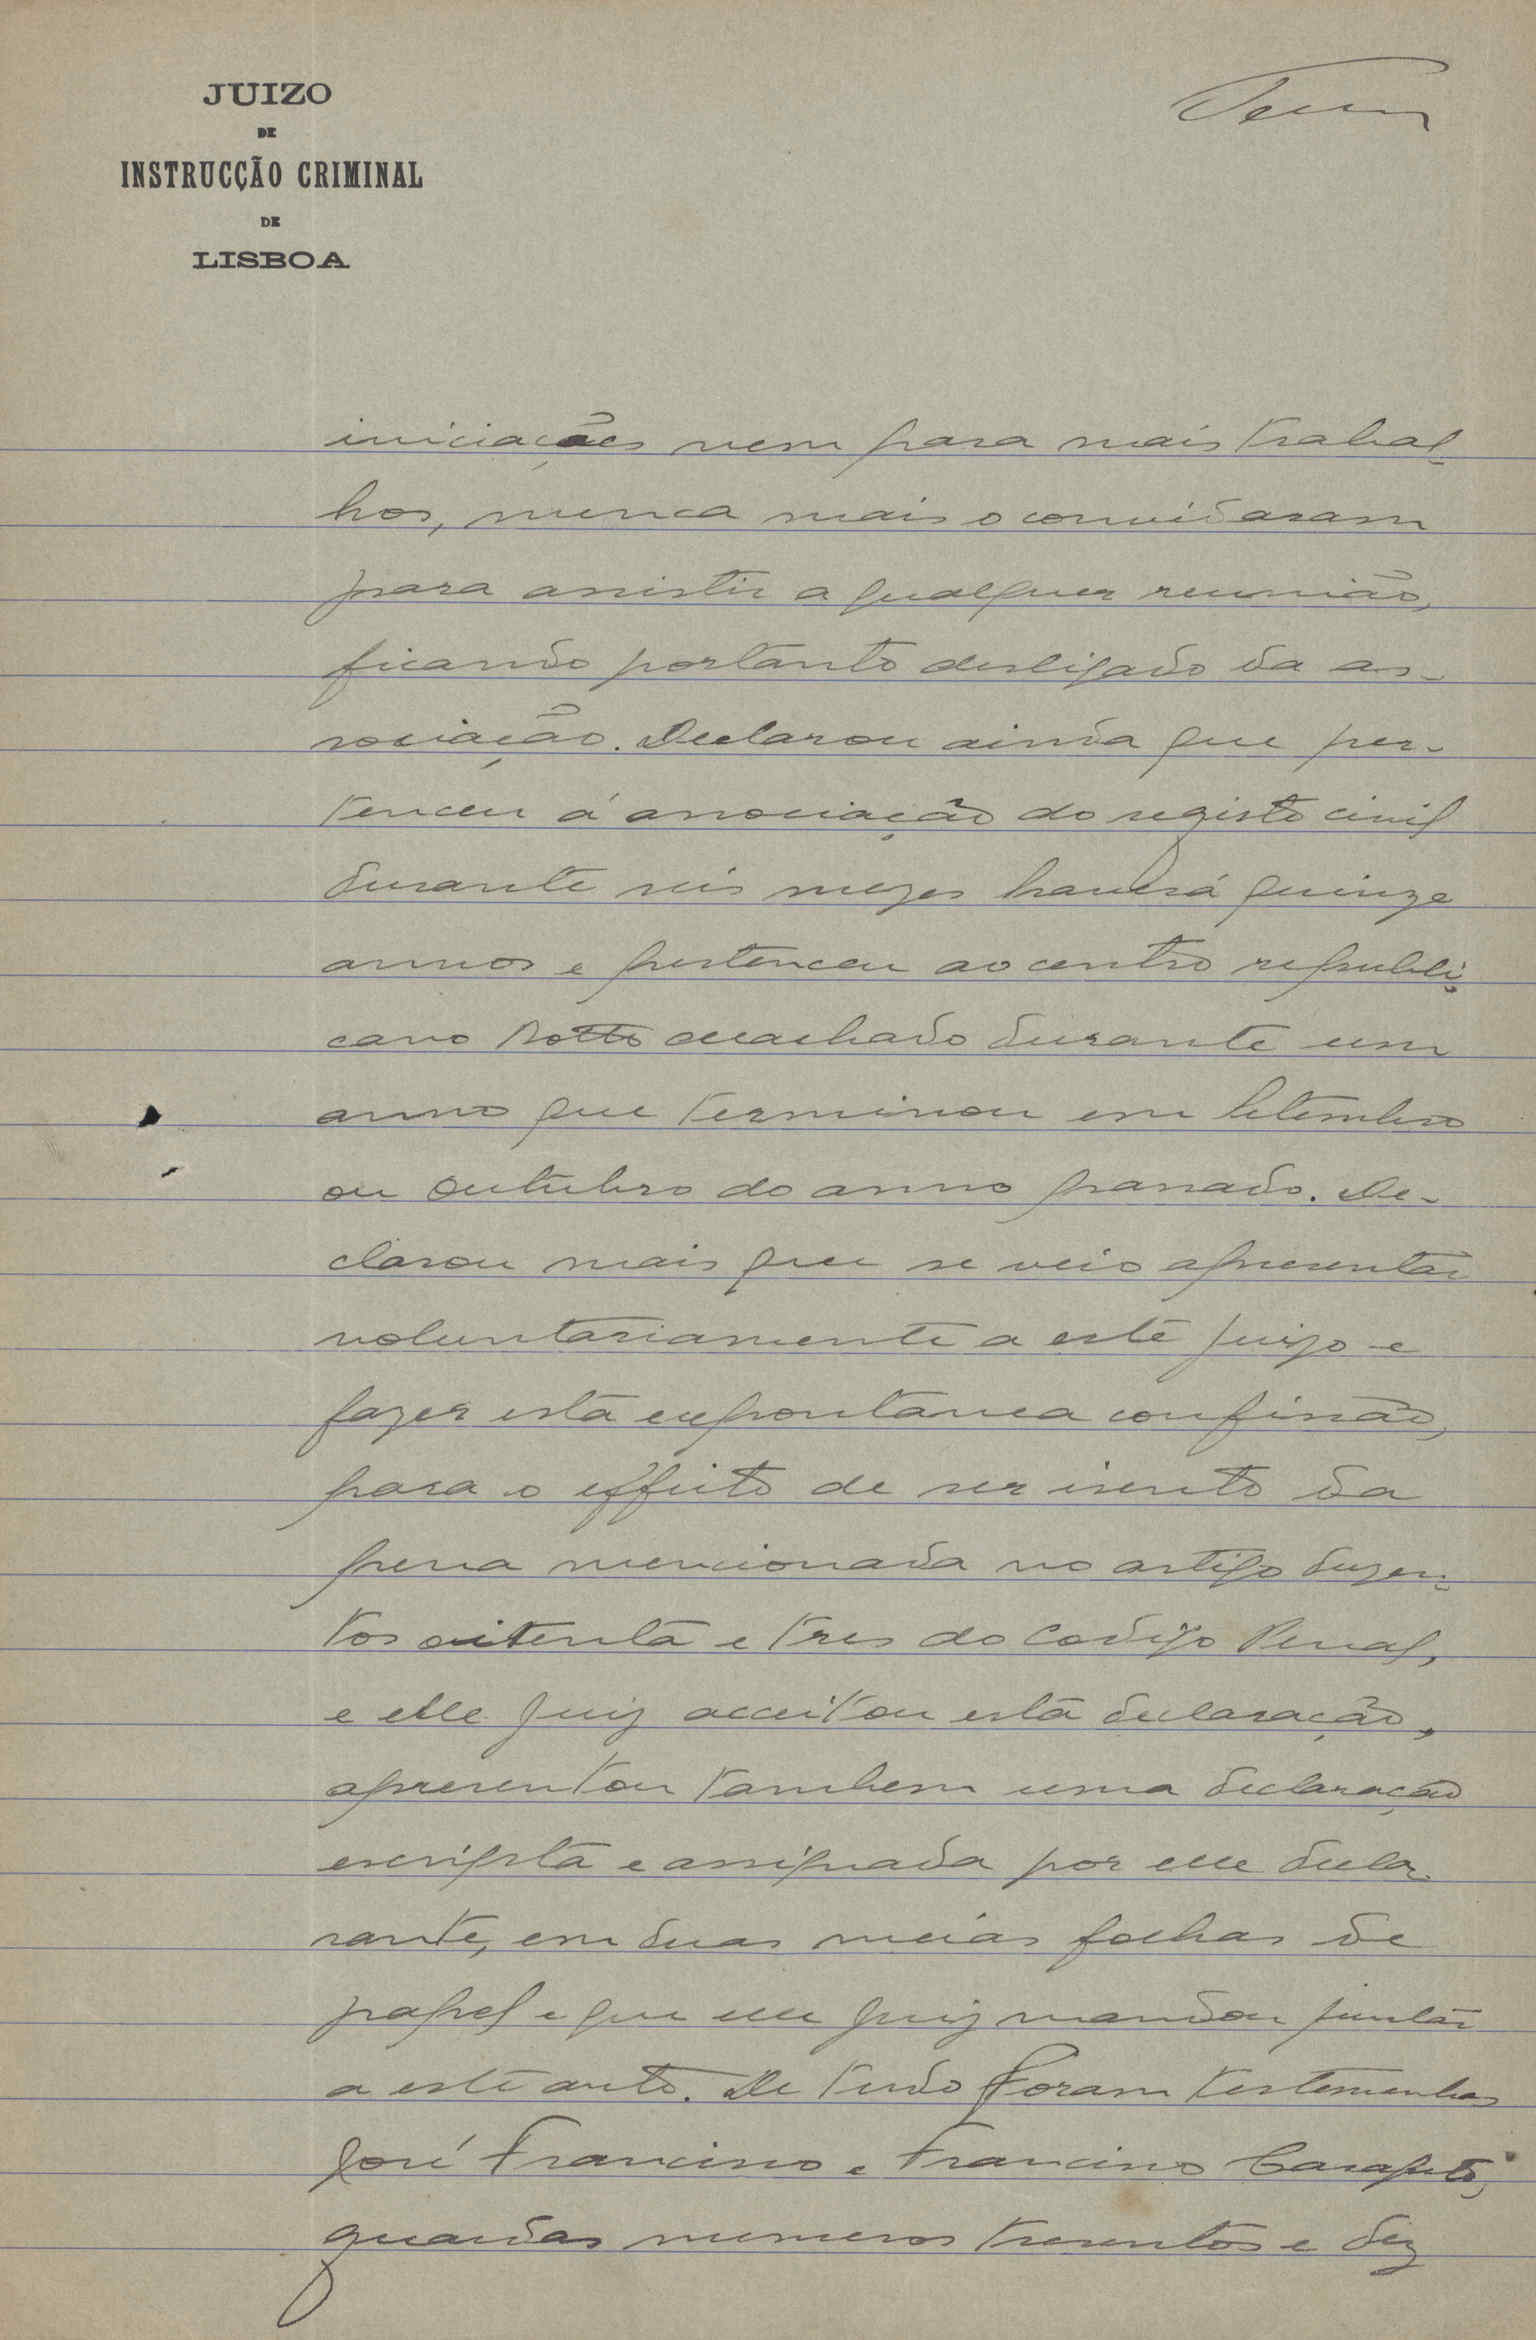 JUIZO
DE
INSTRUCÇÃO CRIMINAL
DE
LISBOA
iniciações nem para mais trabal-
hos, nunca mais o convidaram
para assistir a qualquer reunião,
ficando portanto desligado da as-
sociação. Declarou ainda que per-
tenceu á associação do registo civil
durante seis mezes haverá quinze
annos e pertenceu ao centro republi-
cano Botto Machado durante um
anno que terminou em Setembro
ou Outubro do anno passado. De-
clarou mais que se veio apresentar
voluntariamente a este juizo e
fazer esta expontanea confissão,
para o effeito de ser isento da
pena mencionada no artigo duzen-
tos oitenta e tres do Codigo Penal,
e elle Juiz acceitou esta declaração,
apresentou tambem uma declaração
escripta e assignada por elle decla-
rante, em duas meias folhas de
papel e que elle Juiz mandou juntar
a este auto. De tudo foram testemunhas
José Francisco e Francisco Carapeto,
guardas numeros tresentos e dez